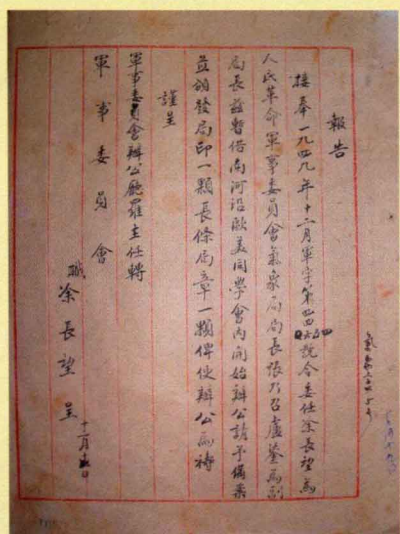 報告
接奉一九四九年十二月軍字第四四號令委任涂長望為
人民革命軍事委員會氣象局局長張乃召盧鋈為副
局長茲暫借南河沿歐美同學會內開始辦公請予備案
並頒發局印一顆長條局章一顆俾便辦公為禱
謹呈
軍事委員會辦公廳羅主任轉
軍事委員會
職涂長望呈
十二月 日